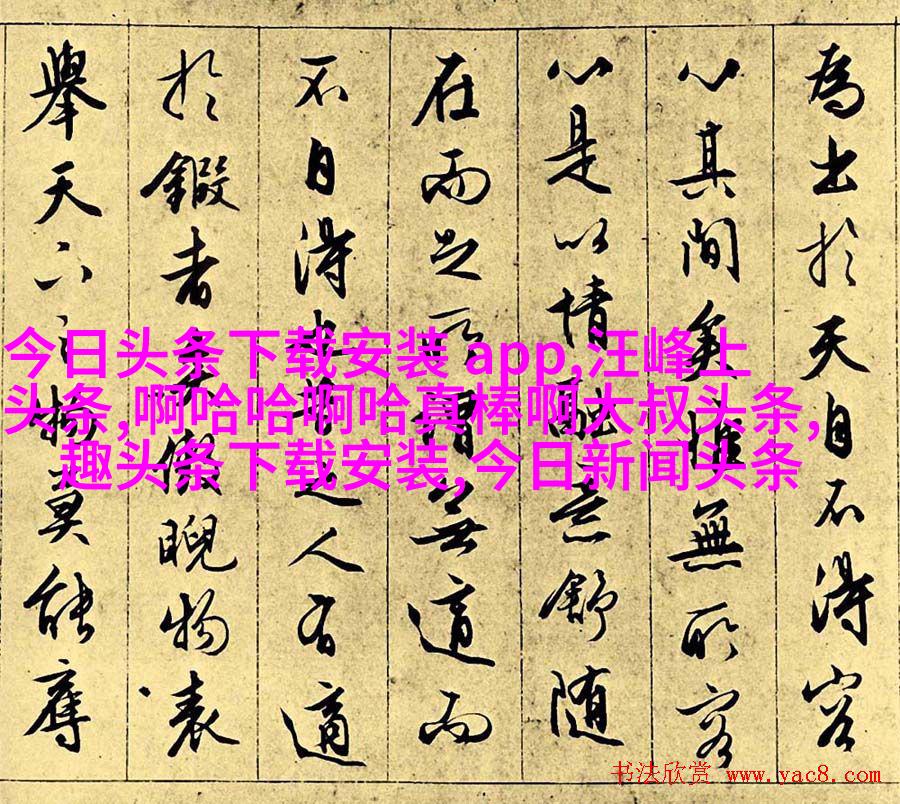 為出於天自不得容
心其間矣惟無所容
心是以情融意舒随
在而足所謂無適而
不自得也之人有適
於鍜者傲睨物表
舉天下之物莫能奪
今日头条下载安装 app,汪峰上
头条,啊哈哈啊哈真棒啊大叔头条,
趣头条下载安装,今日新闻头条
书法欣赏 www.yac8.com